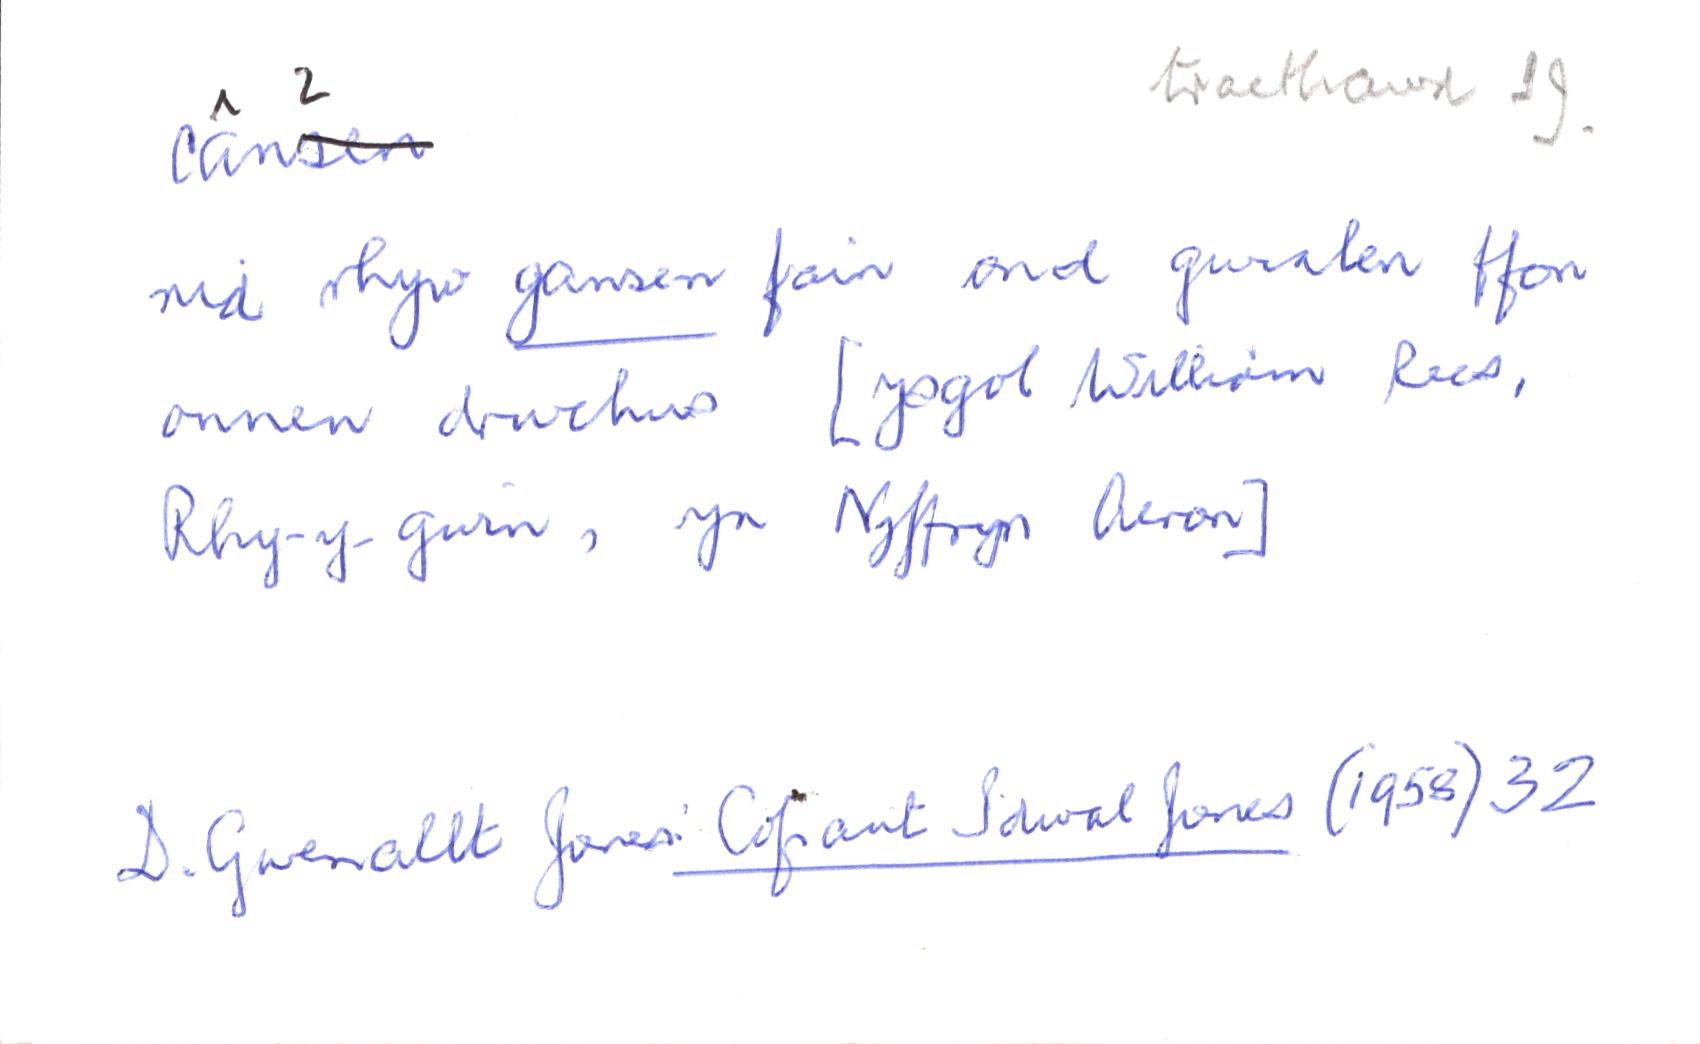 traethawd 19.
cân²sen
nid rhyw gansen fain ond gwialen ffon
onnen drwchus [ysgol William Rees,
Rhyd-y-gwin, yn Nyffryn Aeron]
D. Gwenallt Jones: Cofiant Idwal Jones (1958) 32